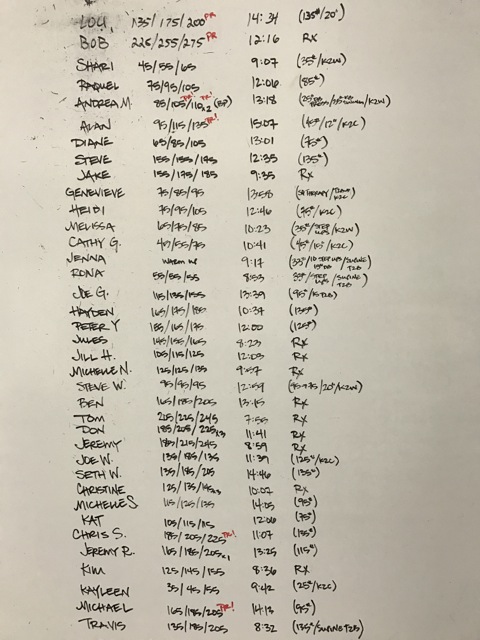 LOU 135/175/200 PR 14:34 (135#/20")
BOB 225/255/275 PR 12:16 Rx
SHARI 45/55/65 9:07 (35#/K2W)
RAQUEL 75/95/105 12:06 (85#)
ANDREA M. 85/105/110x2 (BP) PR PR! 13:18
ALAN 95/115/135 PR! 15:07 (45#/12"/K2C)
DIANE 65/85/105 13:01 (75#)
STEVE 155/155/175 12:35 (135#)
JAKE 155/175/185 9:35 Rx
GENEVIEVE 75/85/95 13:58
HEIDI 75/95/105 12:46 (75#/K2C)
MELISSA 65/75/85 10:23 (35#/STEP UPS/K2W)
CATHY G. 40/55/75 10:41
JENNA WARM UP 9:17
RONA 55/55/55 8:53
JOE G. 115/135/155 13:39
HAYDEN 165/175/185 10:37 (135#)
PETER Y 155/165/175 12:00 (125#)
JULES 145/155/165 8:23 Rx
JILL H. 105/115/125 12:03 Rx
MICHELLE N. 125/125/135 9:57 Rx
STEVE W. 95/95/95 12:59
BEN 165/185/205 13:15 Rx
TOM 205/225/245 7:55 Rx
DON 185/205/225x3 11:41 Rx
JEREMY 185/215/245 8:59 Rx
JOE W. 135/185/135 11:39 (125#/K2C)
SETH W. 135/185/205 14:46 (135#)
CHRISTINE 125/135/145x3 10:02 Rx
MICHELLE S 115/125/135 14:05 (95#)
KAT 105/115/115 12:06 (75#)
CHRIS S. 185/205/225 PR! 11:07 (135#)
JEREMY R. 165/185/205x1 13:25 (115#)
KIM 125/145/155 8:36 Rx
KAYLEEN 35/45/55 9:42 (25#/K2C)
MICHAEL 165/185/205 PR! 14:13 (95#)
TRAVIS 135/185/205 8:32